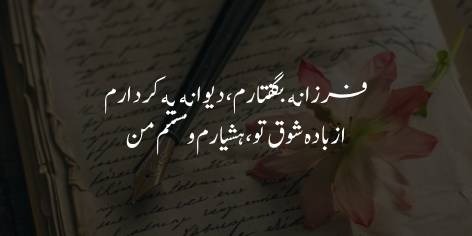 فرزانه بگفتارم، دیوانه به کردارم
از باده شوق تو، هشیارم و مستم من